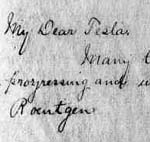 My Dear Tesla.
Many
progressing and
Roentgen